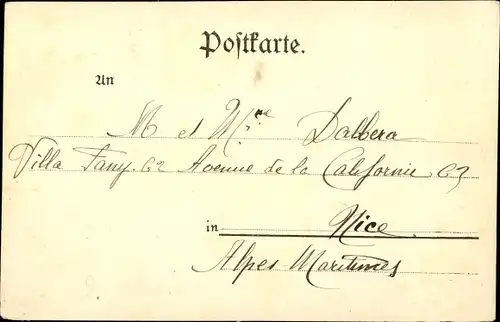 Postkarte.
An
M et Mme Dalbera
Villa Fany. 62 Avenue de la Californie 63
in Nice
Alpes Maritimes